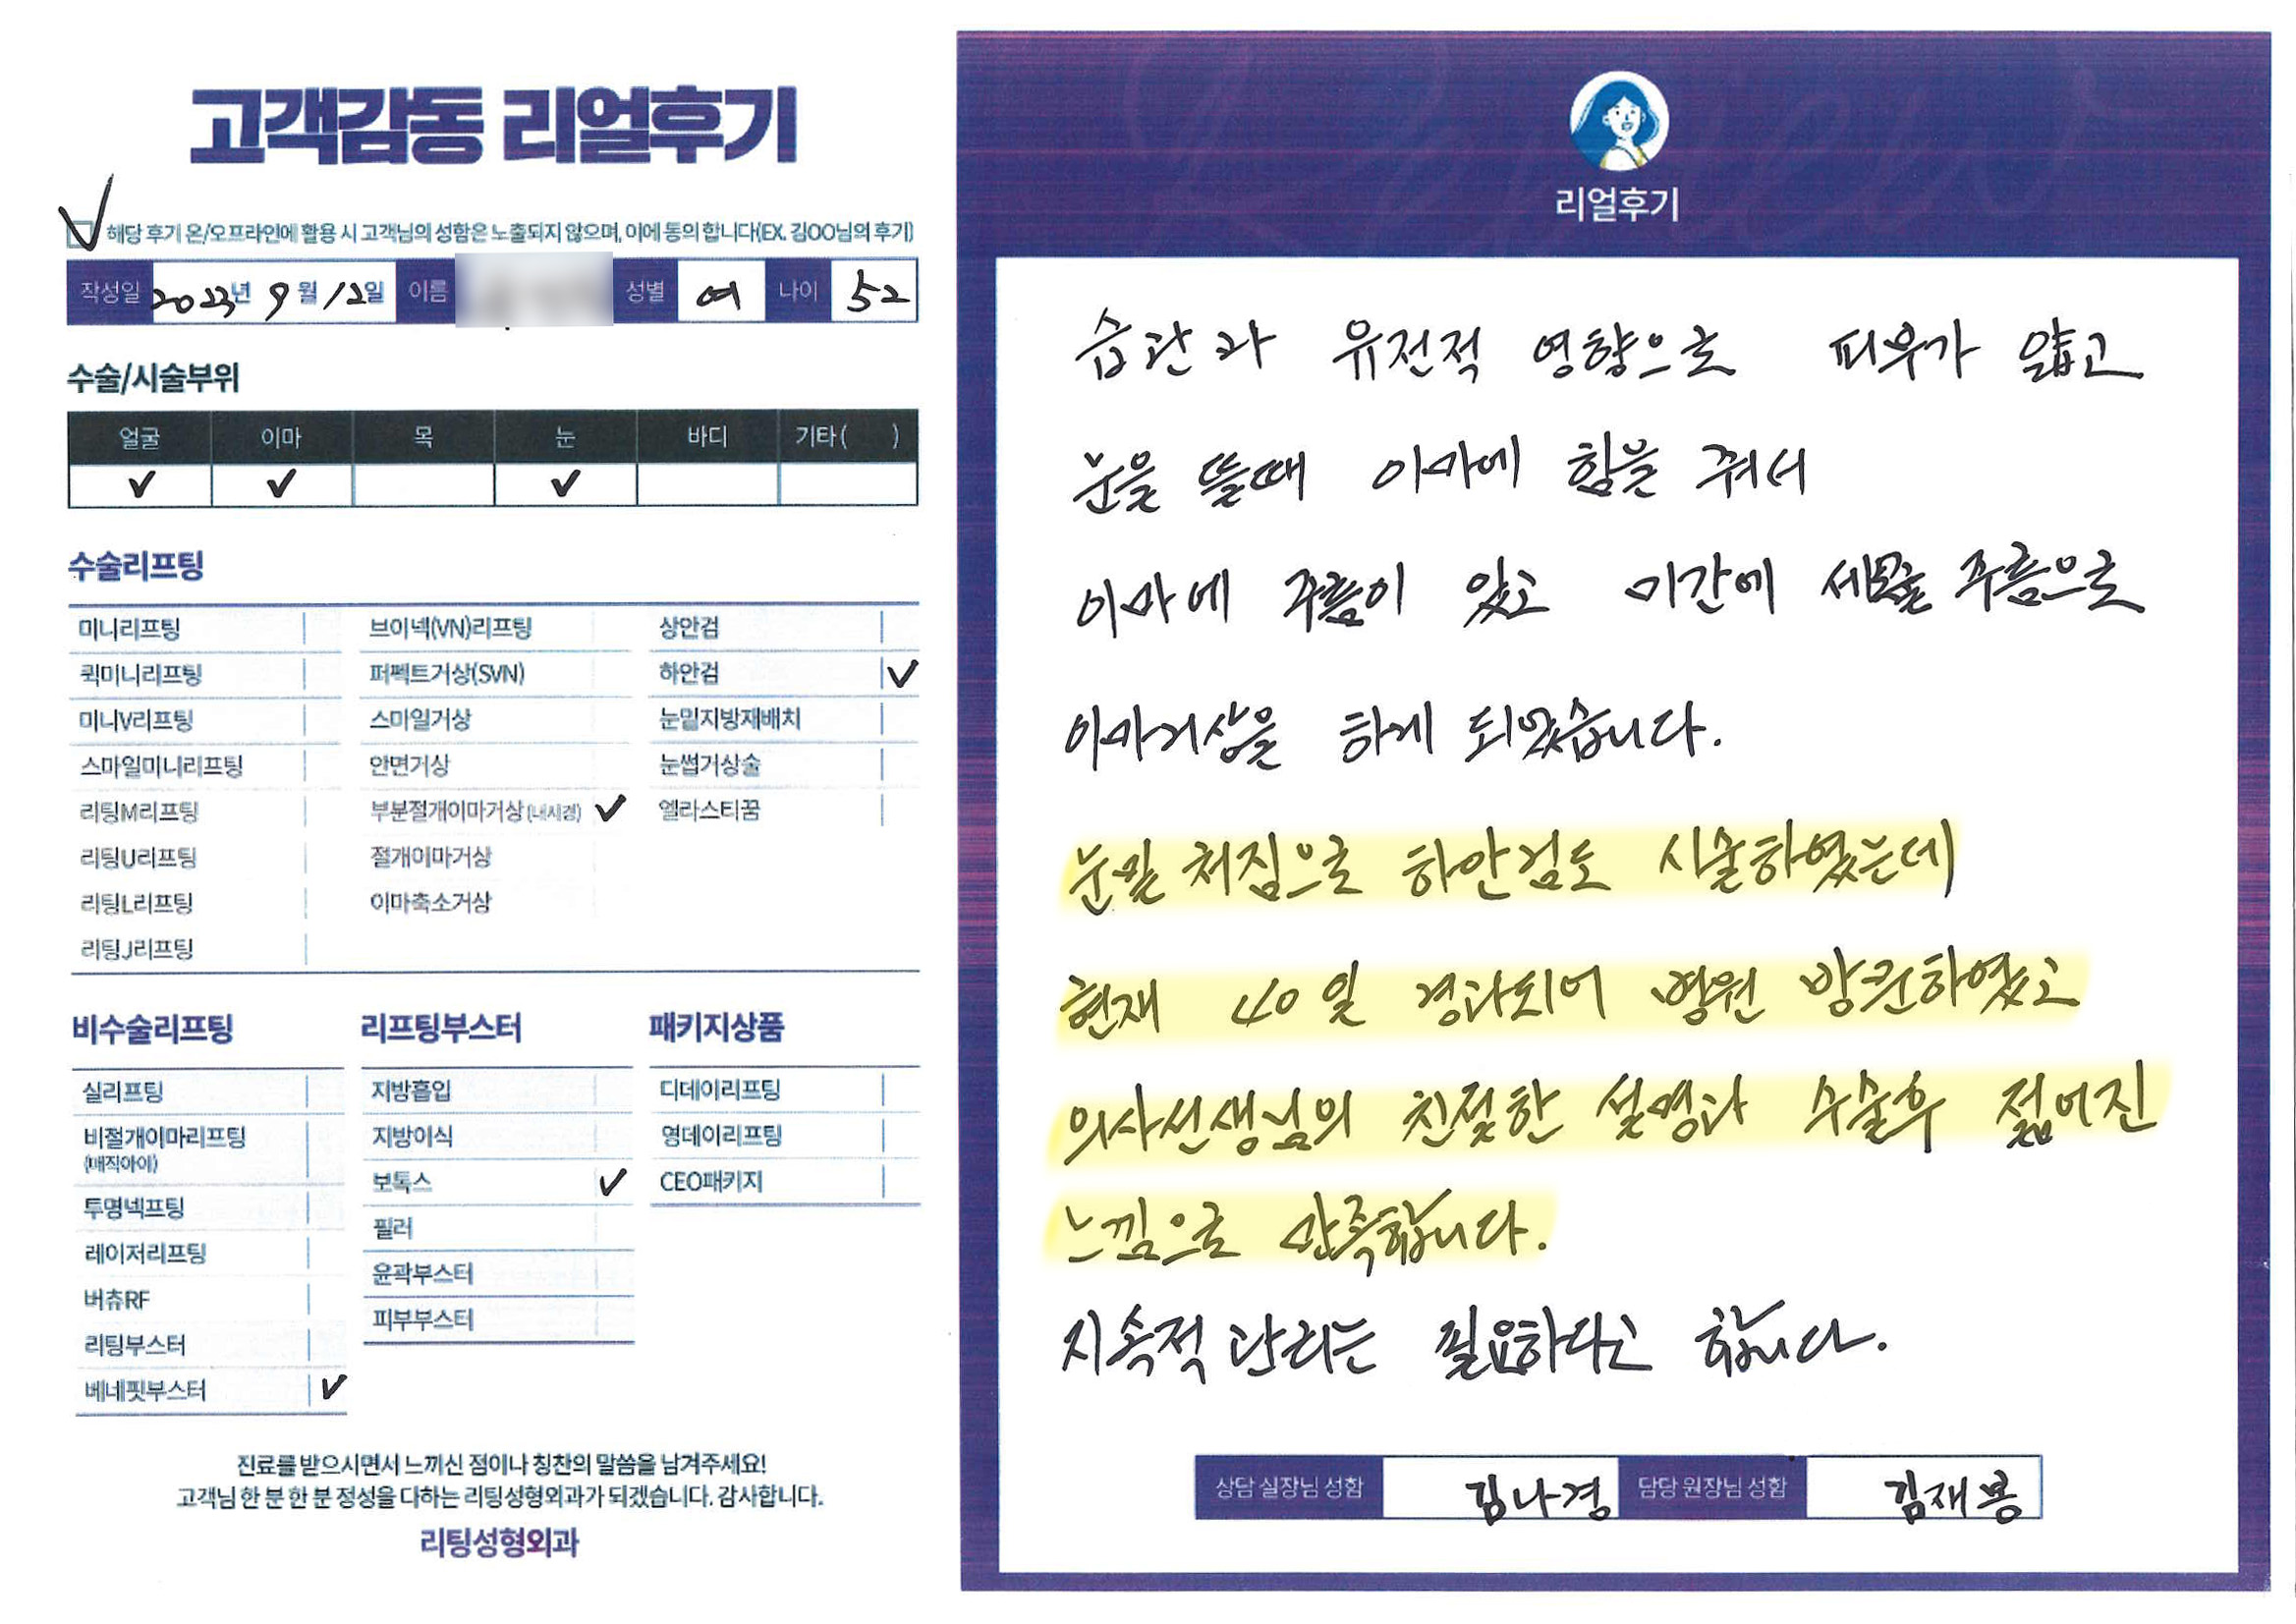 고객감동 리얼후기
✓ 해당 후기 온/오프라인에 활용 시 고객님의 성함은 노출되지 않으며, 이에 동의 합니다(EX. 김OO님의 후기)
작성일 2023년 9월 12일 이름 성별 여 나이 52
수술/시술부위
얼굴 이마 목 눈 바디 기타( )
✓ ✓ ✓
수술리프팅
미니리프팅 브이넥(VN)리프팅 상안검
퀵미니리프팅 퍼펙트거상(SVN) 하안검 ✓
미니V리프팅 스마일거상 눈밑지방재배치
스마일미니리프팅 안면거상 눈썹거상술
리팅M리프팅 부분절개이마거상(내시경) ✓ 엘라스티꿈
리팅U리프팅 절개이마거상
리팅L리프팅 이마축소거상
리팅J리프팅
비수술리프팅 리프팅부스터 패키지상품
실리프팅 지방흡입 디데이리프팅
비절개이마리프팅 지방이식 영데이리프팅
(매직아이)
보톡스 ✓ CEO패키지
투명넥프팅 필러
레이저리프팅 윤곽부스터
버츄RF 피부부스터
리팅부스터
베네핏부스터 ✓
진료를 받으시면서 느끼신 점이나 칭찬의 말씀을 남겨주세요!
고객님 한 분 한 분 정성을 다하는 리팅성형외과가 되겠습니다. 감사합니다.
리팅성형외과
리얼후기
습관과 유전적 영향으로 피부가 얇고
눈을 뜰때 이마에 힘을 줘서
이마에 주름이 있고 미간에 세로 주름으로
이마거상을 하게 되었습니다.
눈밑 처짐으로 하안검도 시술하였는데
현재 40일 경과되어 병원 방문하였고
의사선생님의 친절한 설명과 수술후 젊어진
느낌으로 만족합니다.
지속적 관리는 필요하다고 합니다.
상담 실장님 성함 김나경 담당 원장님 성함 김재봉